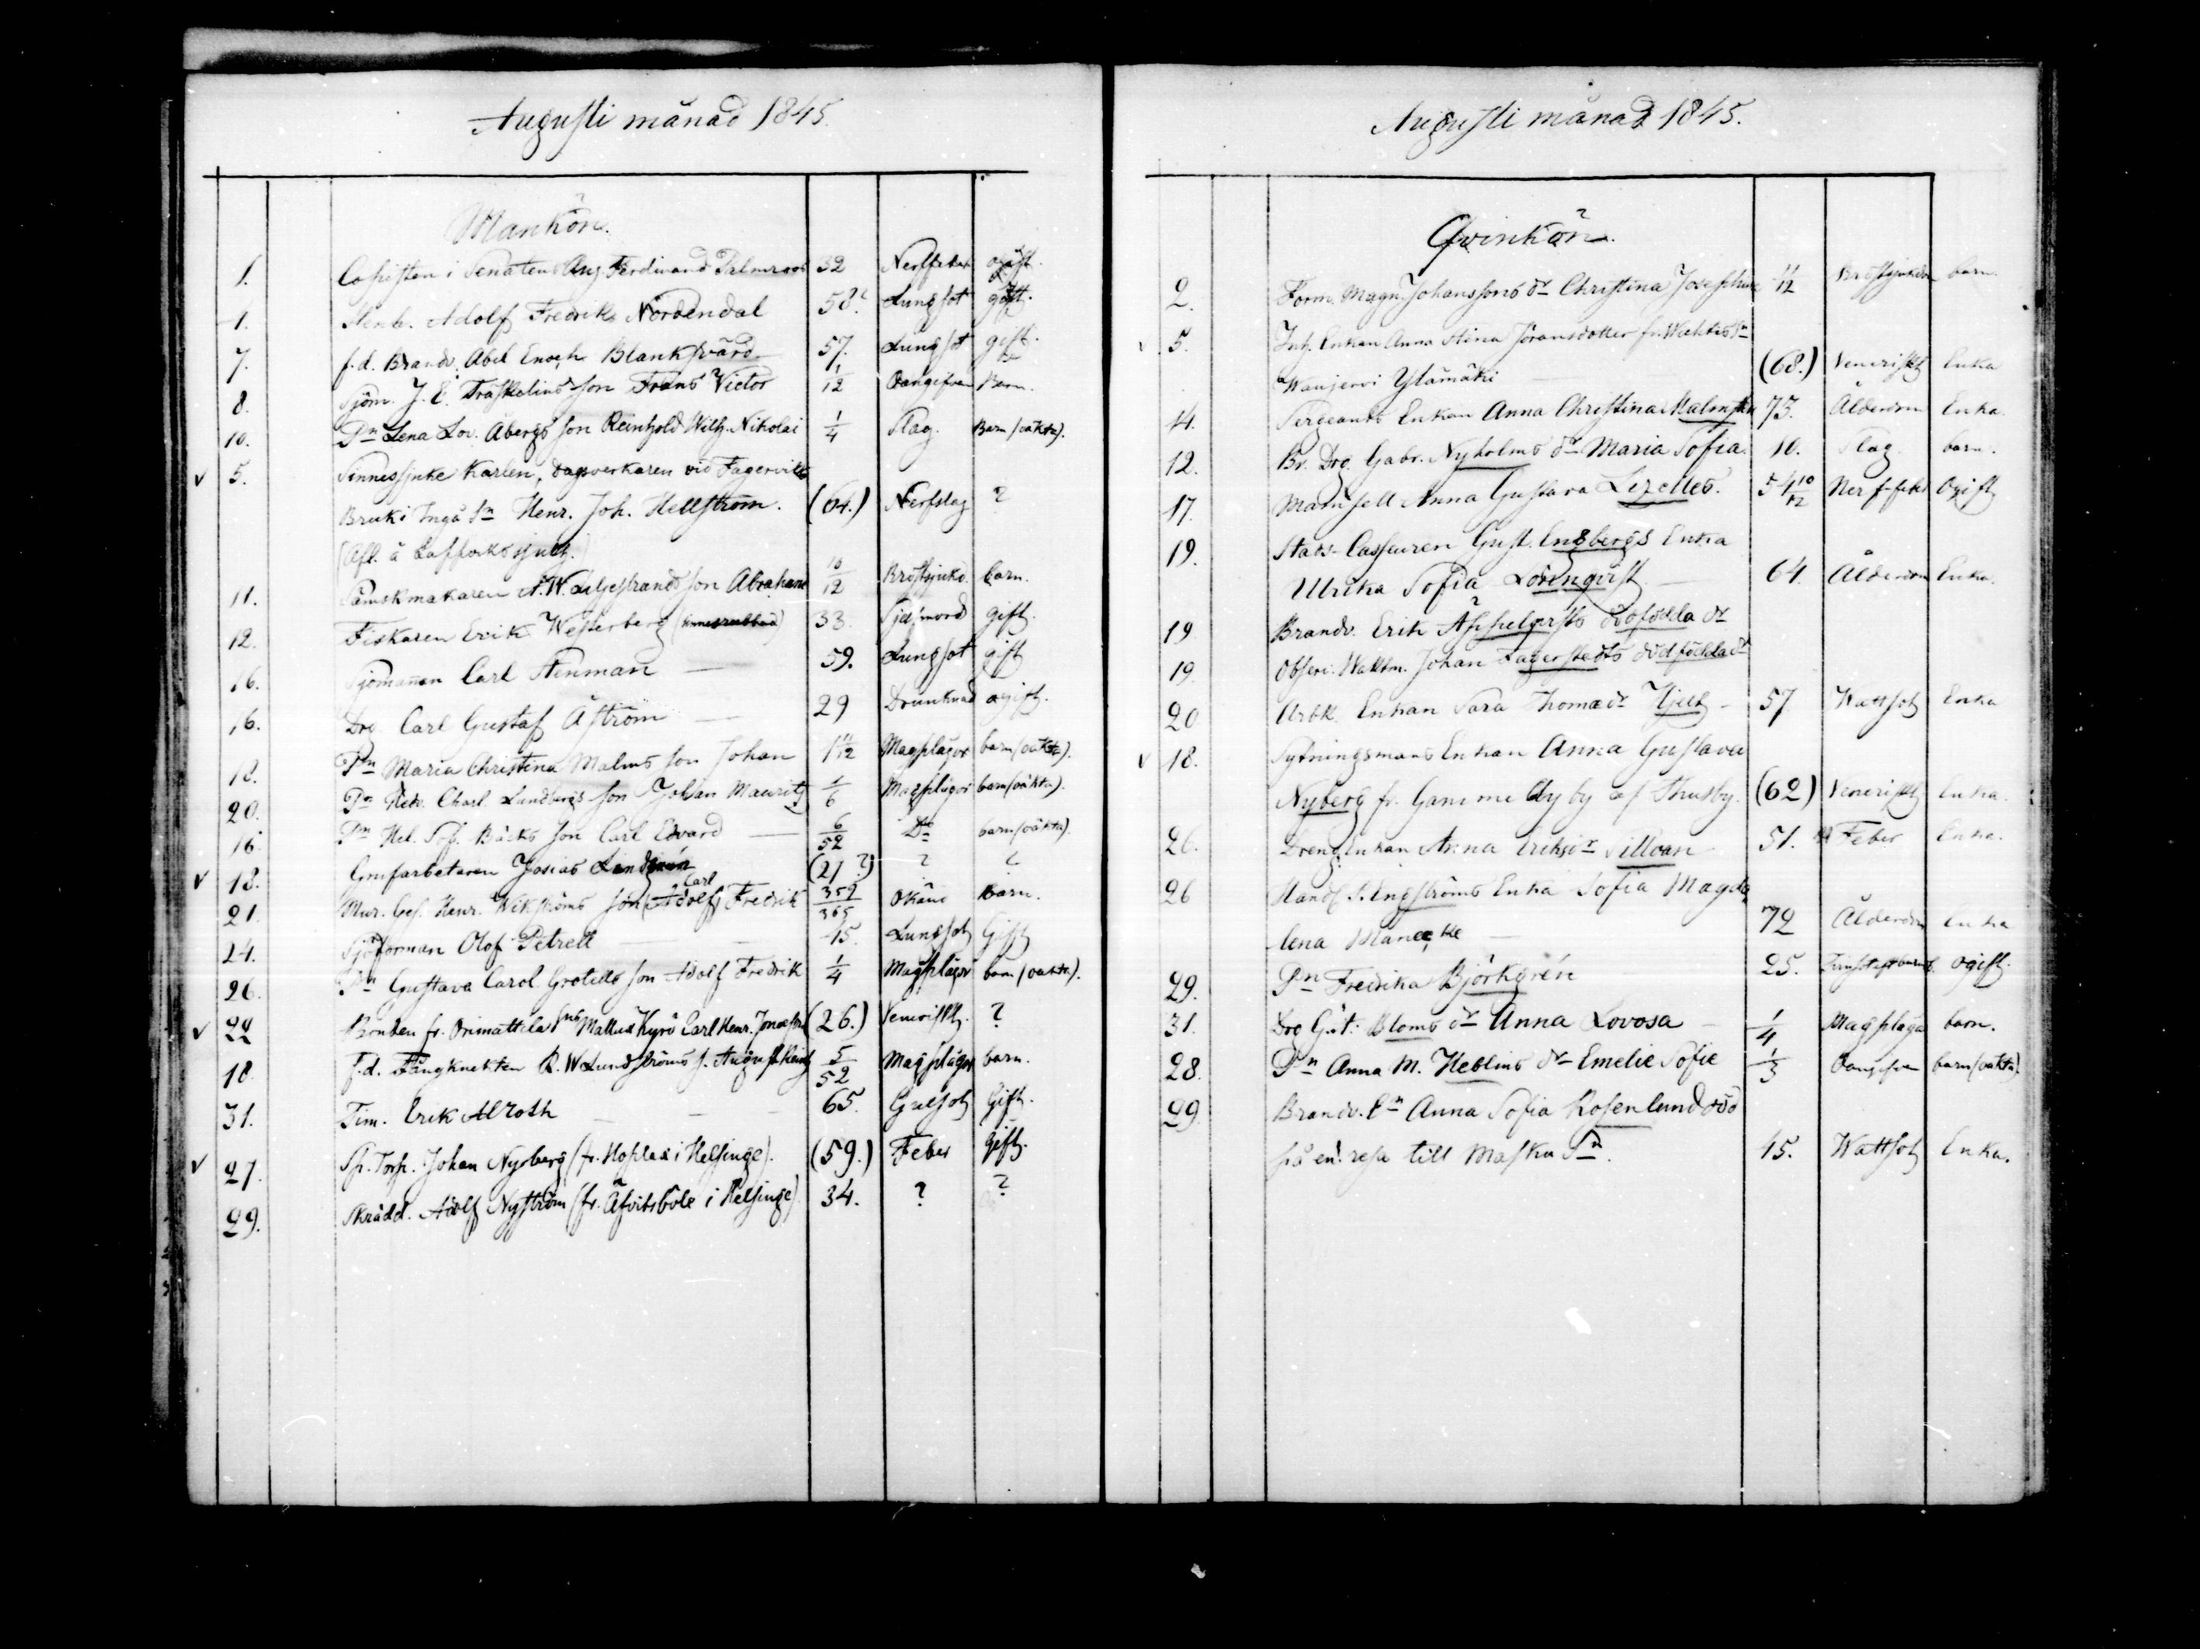 Augusti månad 1845.
Mankön.
1. Copisten i Senaten Aug. Ferdinand Palmroos 32 Nerffeber ogift.
1. Adolf Fredrik Nordendal 58. Lungsot gift.
7. f.d. Brandv. Abel Enoch Blanksvärd 57. Lungsot gift.
8. Sjöm. J. E. Traskelins son Frans Victor 1/12 Oangifven Barn.
10. Pn Lena Lov. Åbergs son Reinhold Wilh. Nikolai 1/4 Slag. Barn (oäkta).
v 5. Sinnessjuke Karlen, dagsverkaren vid Fagerviks
Bruk i Ingå Sn Henr. Joh. Hellström. (64.) Nerfslag ?
11. Sämskmakaren A. W. Liljestrands son Abraham 10/12 Bröstsjukd. barn.
12. Fiskaren Erik Westerberg 33. Sjelfmord gift.
16. Sjömannen Carl Stenman — 59. Lungsot gift
16. Drg Carl Gustaf Åström — 29 Drunknad ogift.
18. Pn Maria Christina Malms son Johan 1 11/12 Magplågor barn (oäkta).
20. Pn Hedv. Charl. Lundbergs son Johan Mauritz 1/6 Magplågor barn (oäkta).
16. Pn Hel. Sof. Bäcks son Carl Edvard — 6/52 Do barn (oäkta).
v 18. Grufarbetaren Josias (21?) ? ?
21. Mur. Ges. Henr. Wikströms son Carl (Adolf) Fredrik 359/365 Okänd barn.
24. Sjötorman Olof Petrell — — 45. Lungsot Gift
26. Pn Gustava Carol. Grotells son Adolf Fredrik 1/4 Magplågor barn (oäkta).
v 22 Bonden fr. Orimattila Mallus Kyrö Carl Henr. (26.) Venerisk. ?
18. f.d. Fångknekten R. W. Lundströms s. August 5/52 Magplågor barn.
31. Tim. Erik Alroth — — — 65. Gulsot Gift.
v 27. Sp. Torp. Johan Nyberg (fr. Hoplax i Helsinge). (59.) Feber gift.
29. Skrädd. Adolf Nyström (fr. Åfvitsböle i Helsinge) 34. ? ?
Augusti månad 1845.
Qvinkön.
2. Form. Magn. Johanssons dr Christina Josephina 11/12 Bröstsjukdom barn.
v 5. Inh. Enkan Anna Stina Jöransdotter fr.
Ylämäki — (68.) Venerisk Enka
4. Sergeants Enkan Anna Christina Malmsten 75. Ålderdom Enka.
12. Br. Drg. Gabr. Nyholms dr Maria Sofia. 10. Slag barn.
17. Mamsell Anna Gustava Lizelles. 54 10/12 Nerffeber Ogift
19. Stads-Casseuren Gust. Engbergs Enka
Ulrika Sofia Lörnqvist — 64 Ålderdom Enka.
19. Brandv. Erik Äppelqvists dödfödda dr
19. Observ. Waktm. Johan Fagerstedts dödfödda dr
20 Arbk. Enkan Sara Thomædr Hjelt — 57 Wattsot Enka
v 18. Sytningsmans Enkan Anna Gustava
Nyberg fr. Gammelby by af Thusby. (62) Venerisk Enka.
26. Dreng Enkan Anna Eriksdr Sillvan 51. Feber Enka.
26 Handl. S. Engströms Enka Sofia Magda
lena — 72 Ålderdom Enka
29. Pn Fredrika Björkgrén 25. ogift.
31. Drg G:t: Bloms dr Anna Lovosa — 1/4 Magplåga barn.
28. Pn Anna M. Heblins dr Emelie Sofie 1/3 Oangifven barn (oäkta).
29. Brandv. En Anna Sofia Rosenlund död
på en resa till Masku Sn. 45. Wattsot Enka.